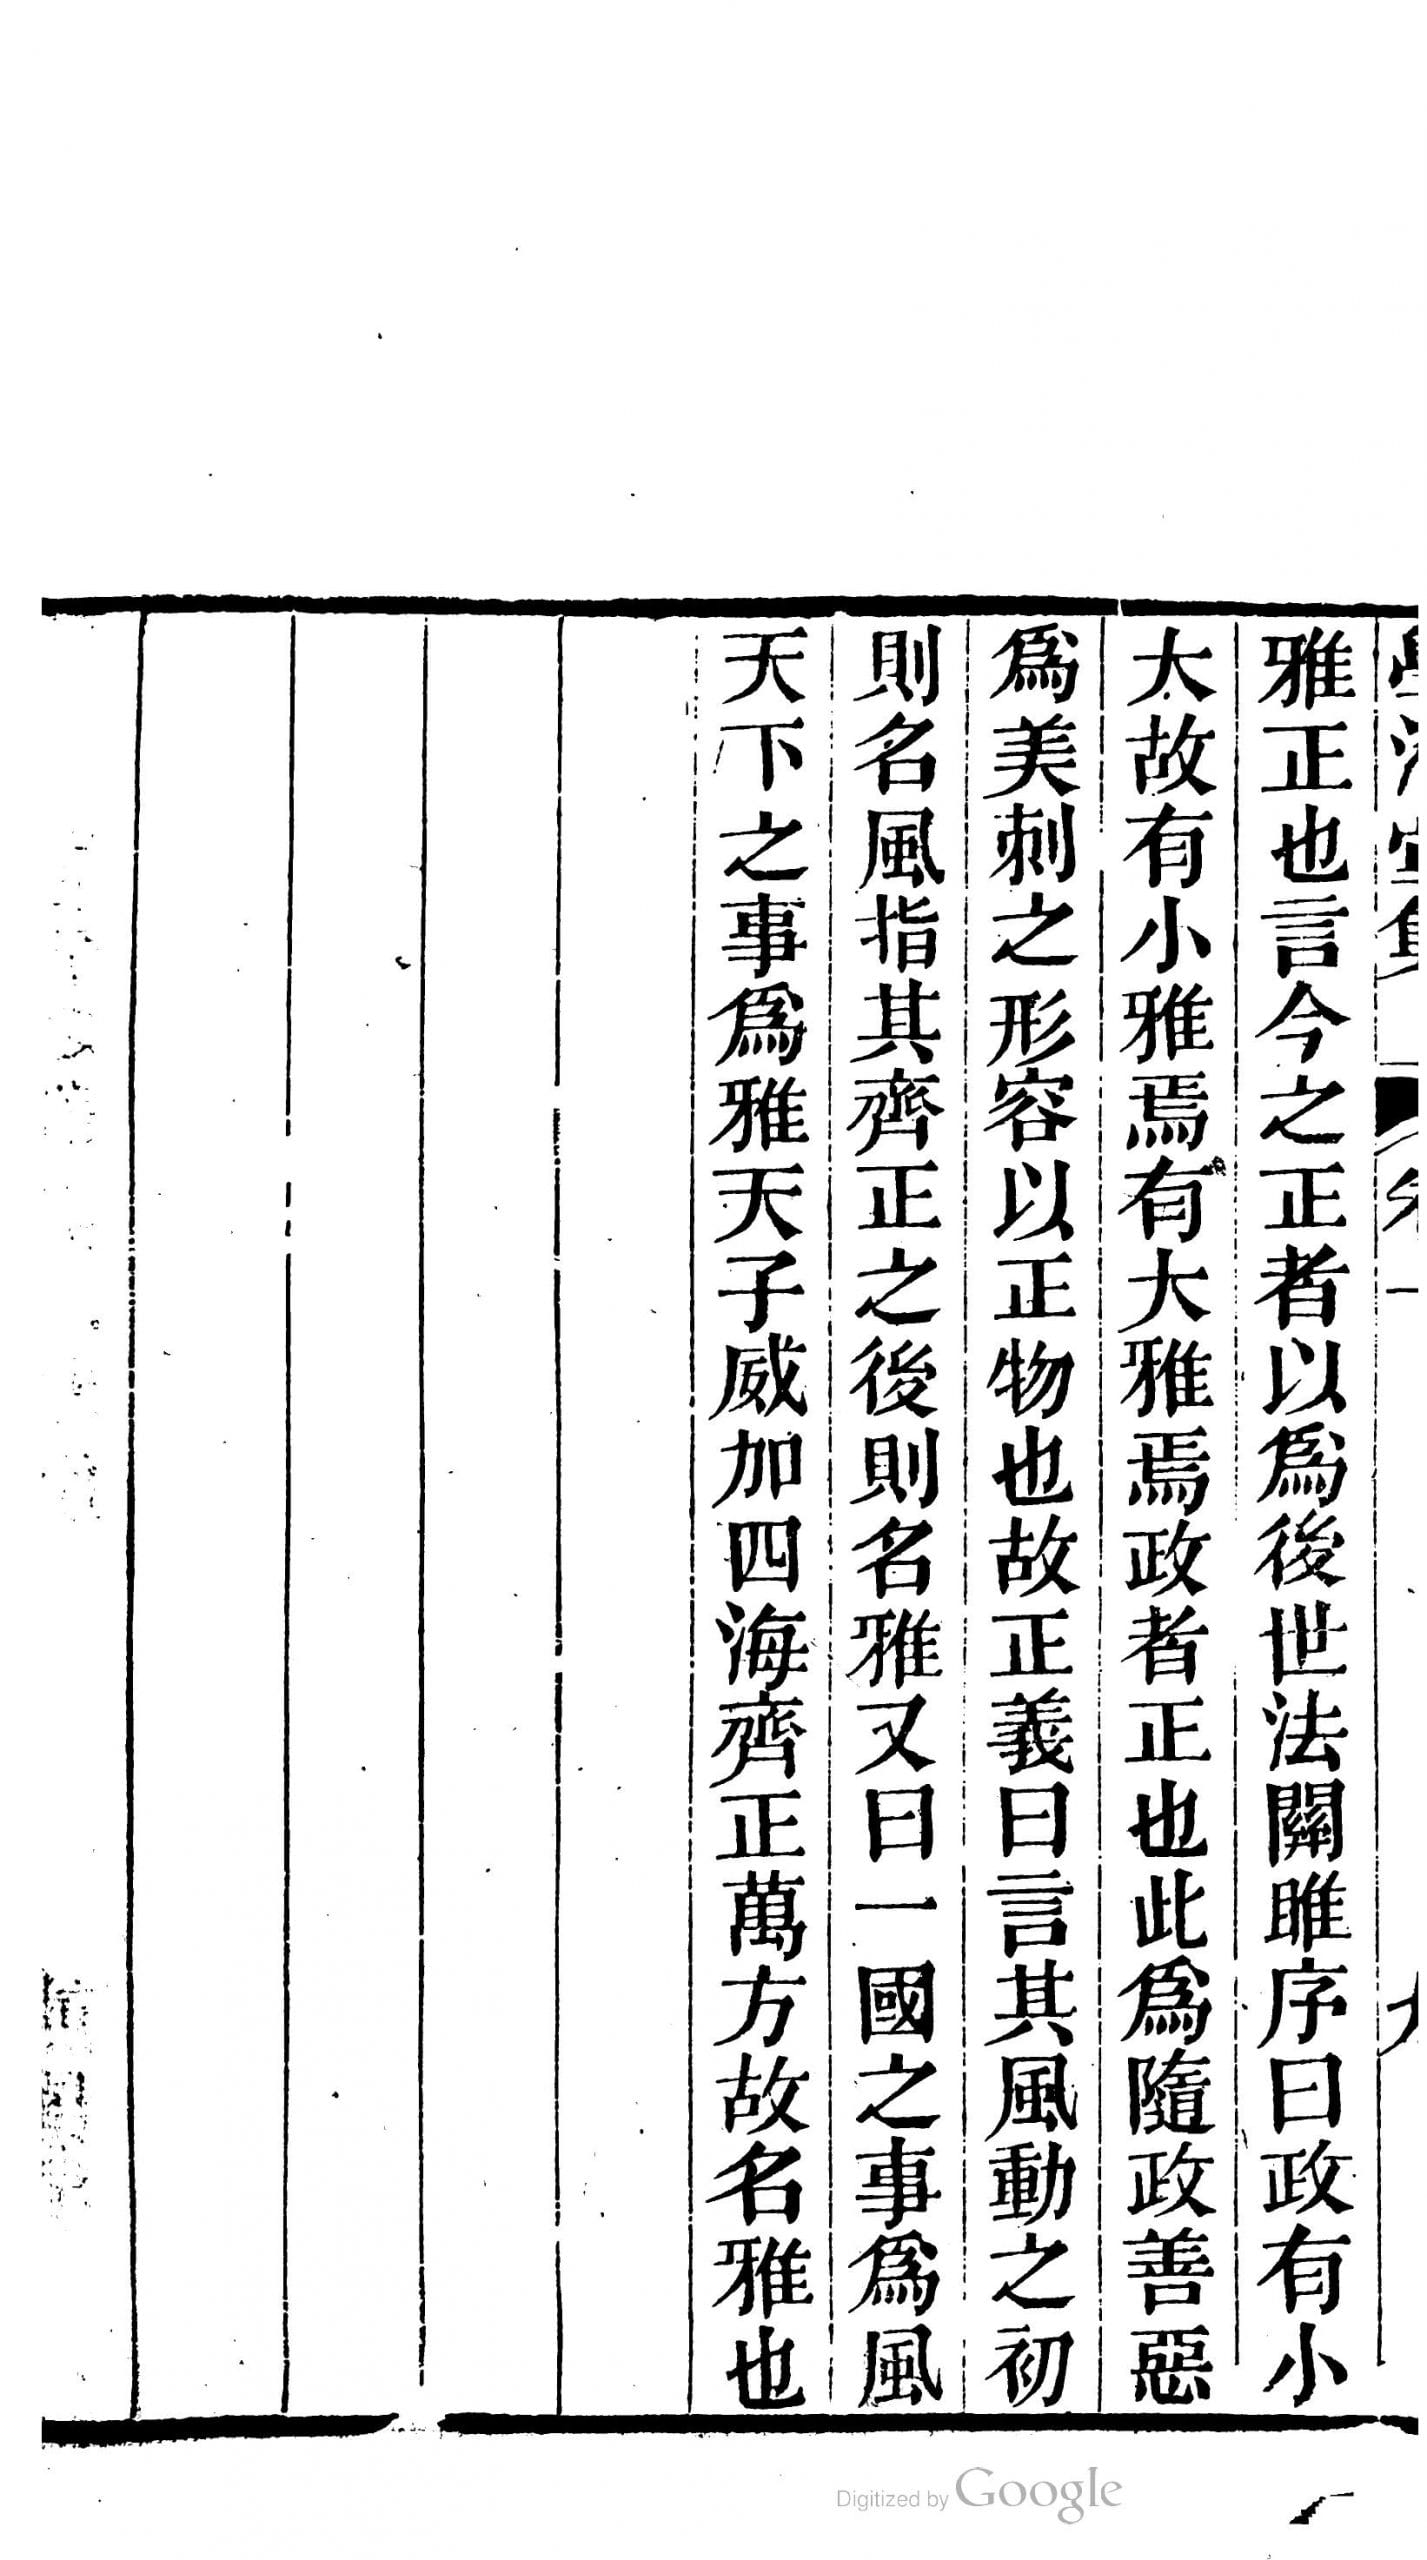 雅正也言今之正者以爲後世法關雎序曰政有小
大故有小雅焉有大雅焉政者正也此爲隨政善惡
爲美刺之形容以正物也故正義曰言其風動之初
則名風指其齊正之後則名雅又曰一國之事爲風
天下之事爲雅天子威加四海齊正萬方故名雅也
Digitized by Google